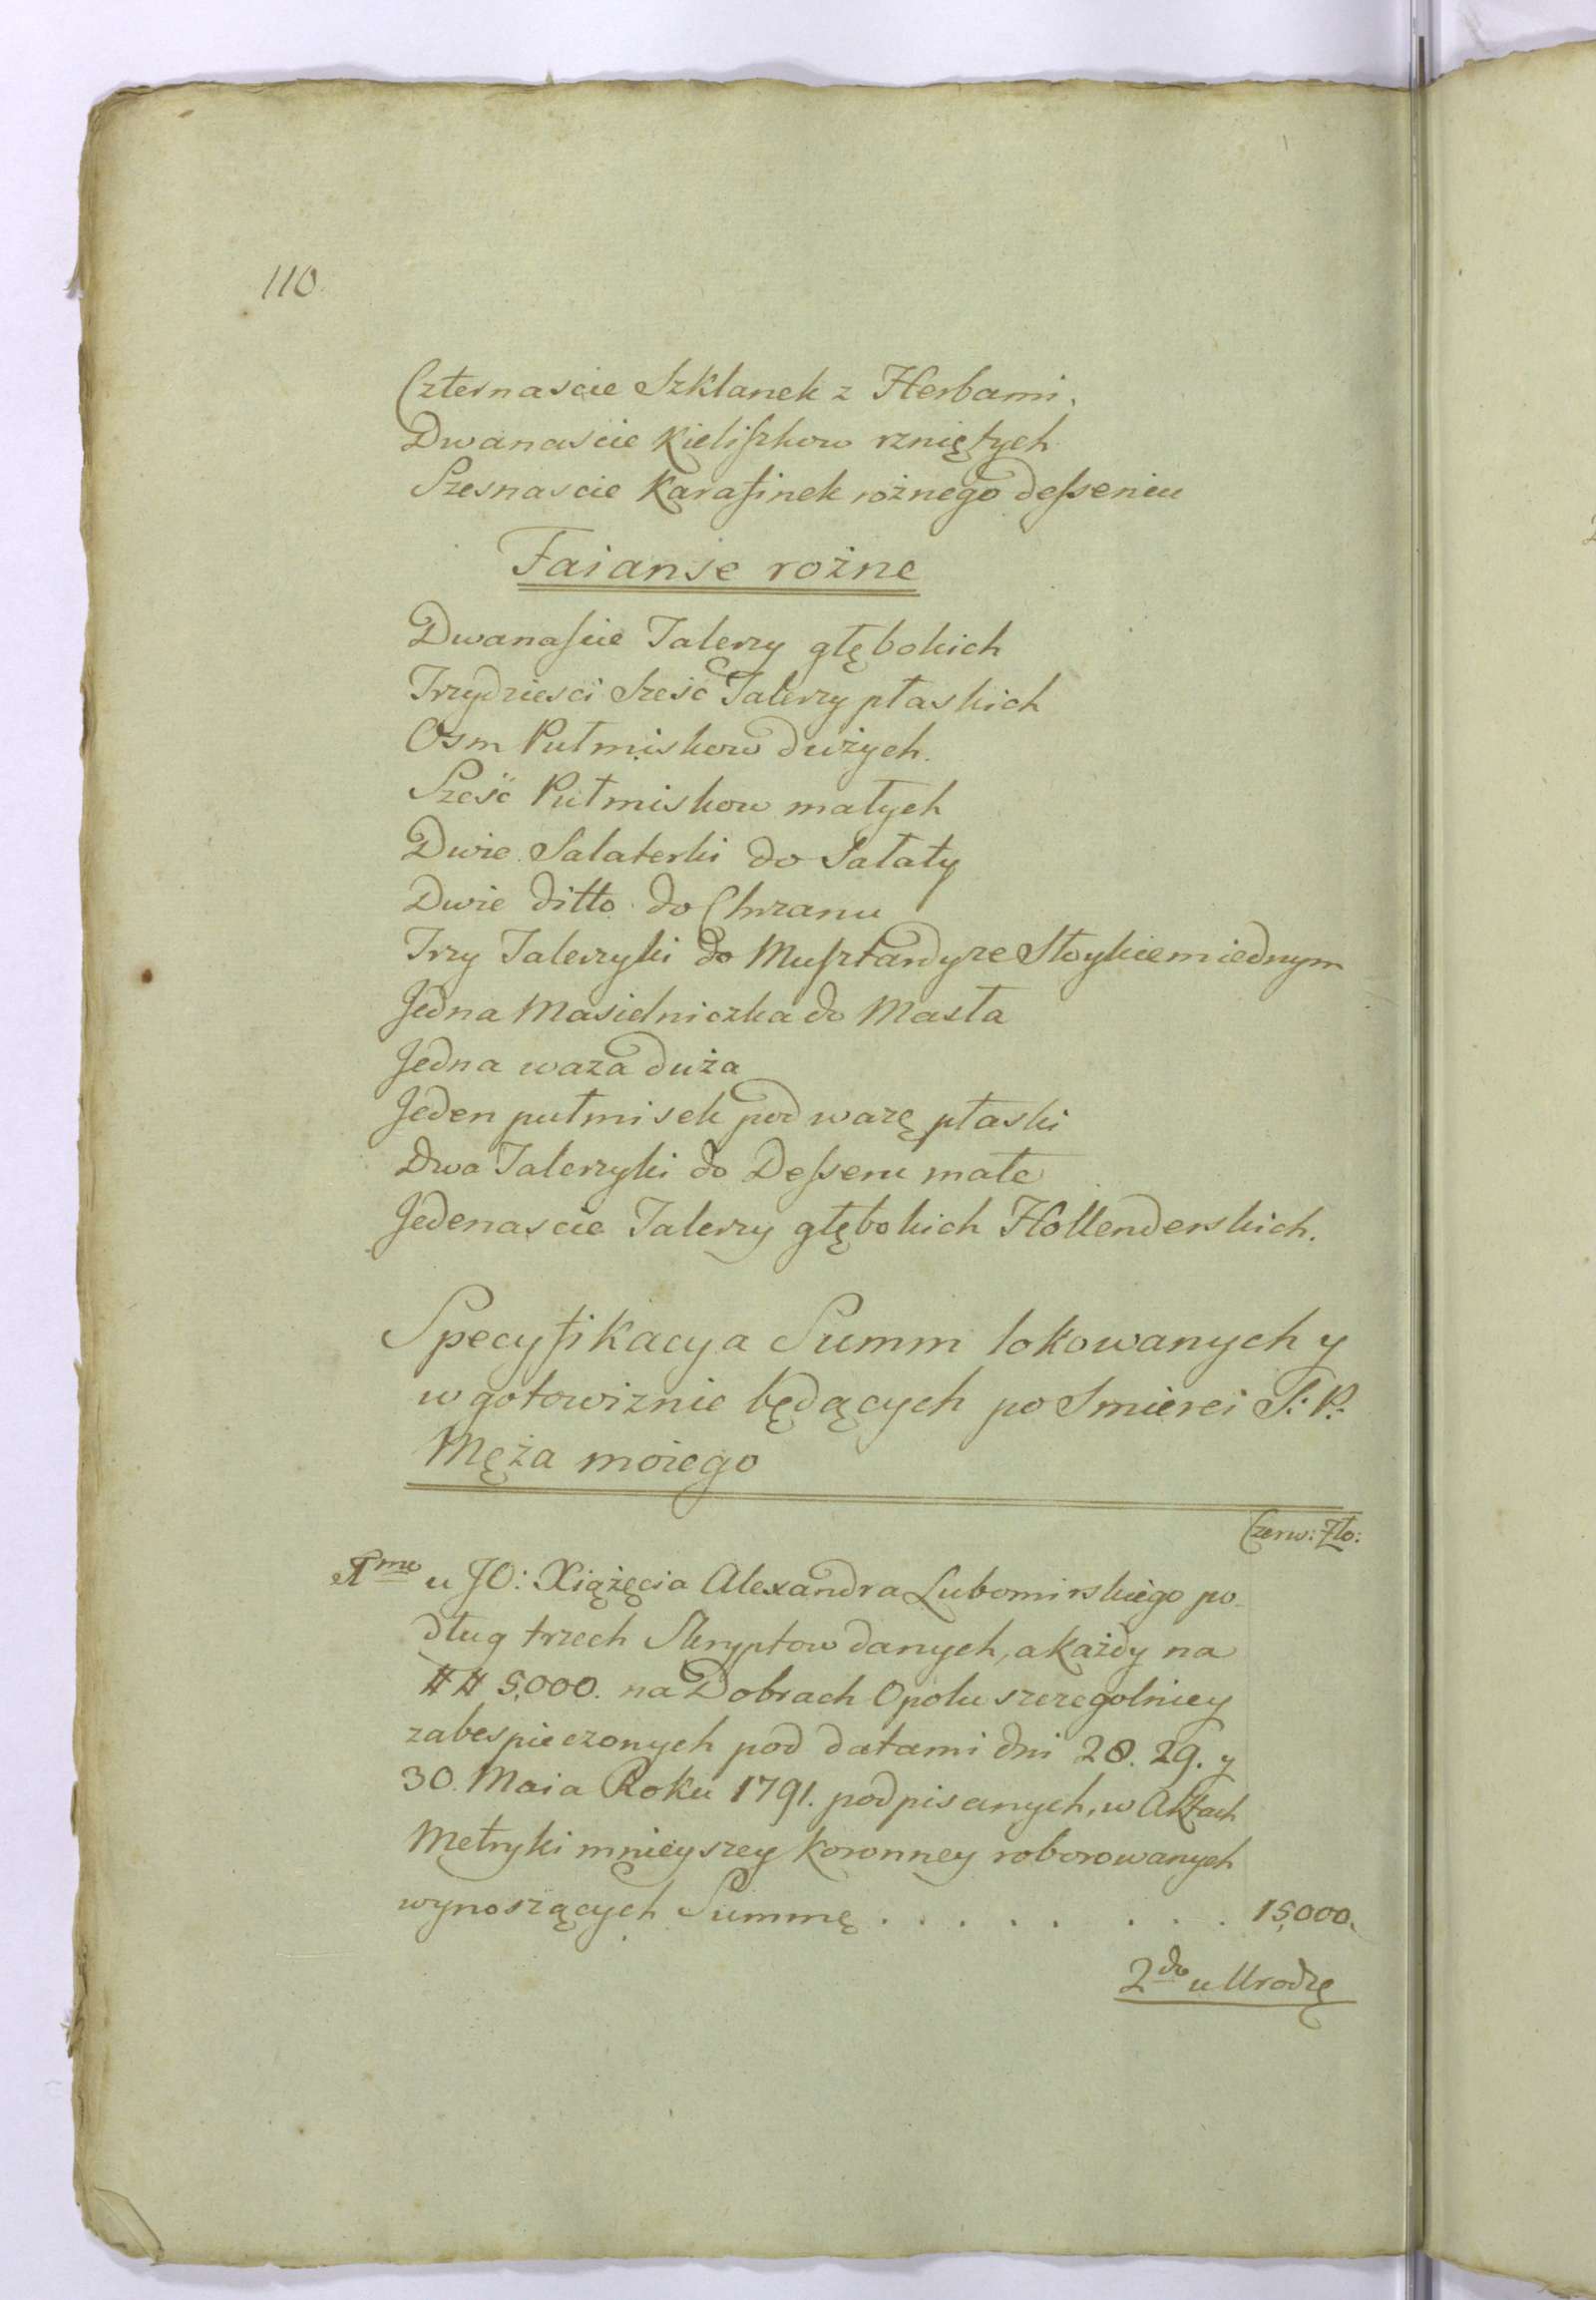 110
Czternascie Szklanek z Herbami.
Dwanascie Kieliszkow rzniętych
Szesnascie Karafinek rożnego desseniu
Faianse rożne
Dwanascie Talerzy głębokich
Trzydziesci Szesć Talerzy płaskich
Osm Pułmiskow dużych.
Szesć Pułmiskow małych
Dwie Salaterki do Sałaty
Dwie ditto do Chrzanu
Trzy Talerzyki do Musztardy ze Słoykiem iednym
Jedna Masielniczka do Masła
Jedna waza duża
Jeden pułmisek pod wazę płaski
Dwa Talerzyki do Desseru małe
Jedenascie Talerzy głębokich Hollenderskich.
Specyfikacya Summ lokowanych y
w gotowiznie będących po Smierci S: P:
Męża moiego
Czerw: Zło:
1mo u JO: Xiążęcia Alexandra Lubomirskiego po-
dług trzech Skryptow danych, a każdy na
## 5,000. na Dobrach Opolu szczegolniey
zabespieczonych pod datami dni 28. 29. y
30. Maia Roku 1791. podpisanych, w Aktach
Metryki mnieyszey Koronney roborowanych
wynoszących Summę . . . . . . . . 15,000.
2do u Urodzę